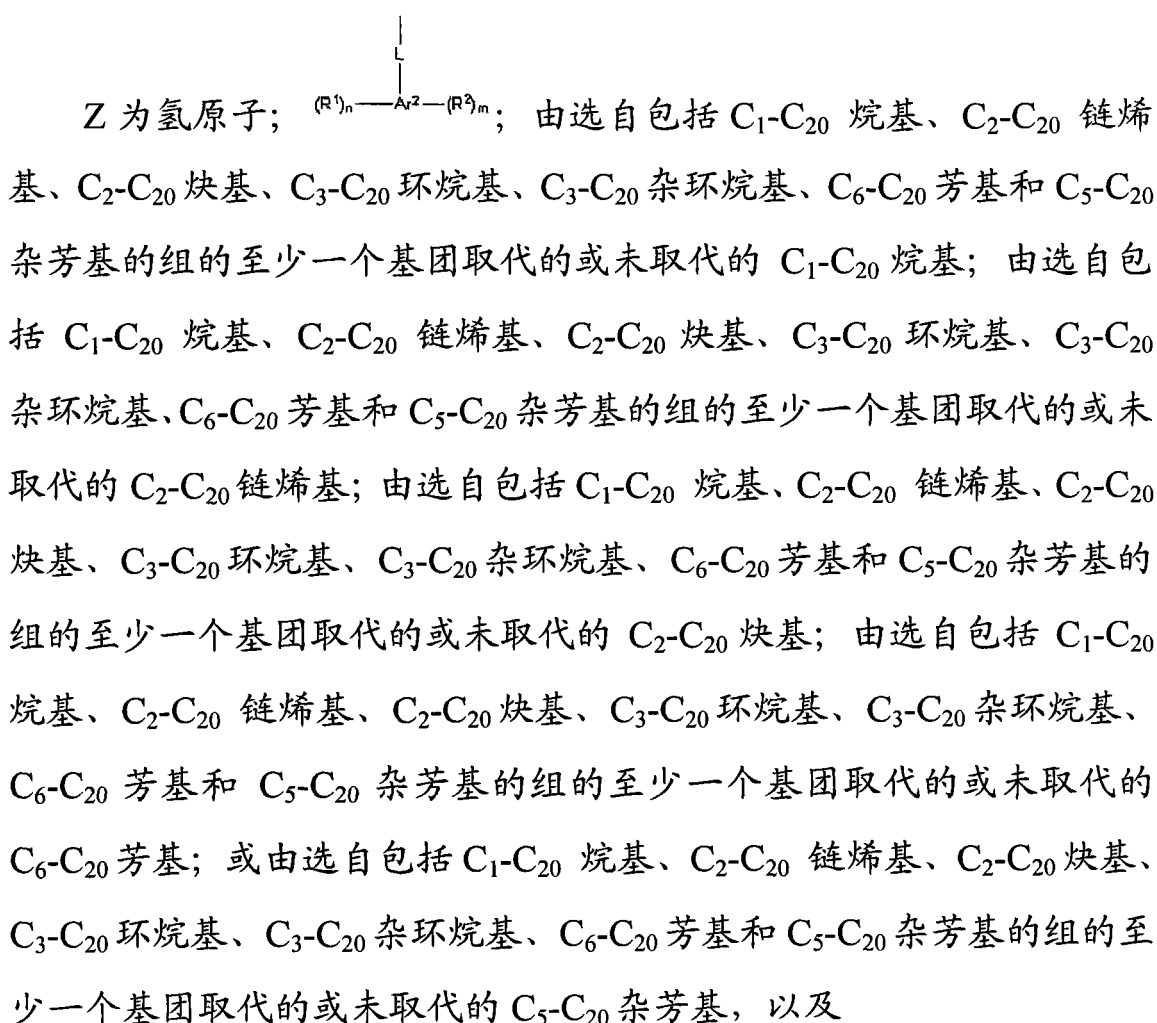 L
Z 为氢原子； (R¹)ₙ—Ar²—(R²)ₘ； 由选自包括 C₁-C₂₀ 烷基、C₂-C₂₀ 链烯
基、C₂-C₂₀ 炔基、C₃-C₂₀ 环烷基、C₃-C₂₀ 杂环烷基、C₆-C₂₀ 芳基和 C₅-C₂₀
杂芳基的组的至少一个基团取代的或未取代的 C₁-C₂₀ 烷基；由选自包
括 C₁-C₂₀ 烷基、C₂-C₂₀ 链烯基、C₂-C₂₀ 炔基、C₃-C₂₀ 环烷基、C₃-C₂₀
杂环烷基、C₆-C₂₀ 芳基和 C₅-C₂₀ 杂芳基的组的至少一个基团取代的或未
取代的 C₂-C₂₀ 链烯基；由选自包括 C₁-C₂₀ 烷基、C₂-C₂₀ 链烯基、C₂-C₂₀
炔基、C₃-C₂₀ 环烷基、C₃-C₂₀ 杂环烷基、C₆-C₂₀ 芳基和 C₅-C₂₀ 杂芳基的
组的至少一个基团取代的或未取代的 C₂-C₂₀ 炔基；由选自包括 C₁-C₂₀
烷基、C₂-C₂₀ 链烯基、C₂-C₂₀ 炔基、C₃-C₂₀ 环烷基、C₃-C₂₀ 杂环烷基、
C₆-C₂₀ 芳基和 C₅-C₂₀ 杂芳基的组的至少一个基团取代的或未取代的
C₆-C₂₀ 芳基；或由选自包括 C₁-C₂₀ 烷基、C₂-C₂₀ 链烯基、C₂-C₂₀ 炔基、
C₃-C₂₀ 环烷基、C₃-C₂₀ 杂环烷基、C₆-C₂₀ 芳基和 C₅-C₂₀ 杂芳基的组的至
少一个基团取代的或未取代的 C₅-C₂₀ 杂芳基，以及